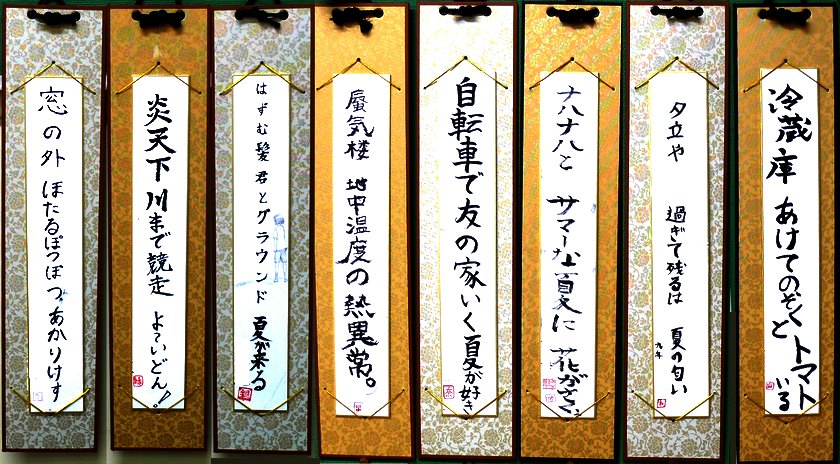 冷蔵庫 あけてのぞくと トマトいる
夕立や 過ぎて残るは 夏の匂い
ナハナハと サマーな夏に 花がさく
自転車で友の家いく夏が好き
蜃気楼 地中温度の熱異常。
はずむ髪 君とグラウンド 夏が来る
炎天下 川まで競走 よーいどん!
窓の外 ほたるぽつぽつ あかりけす